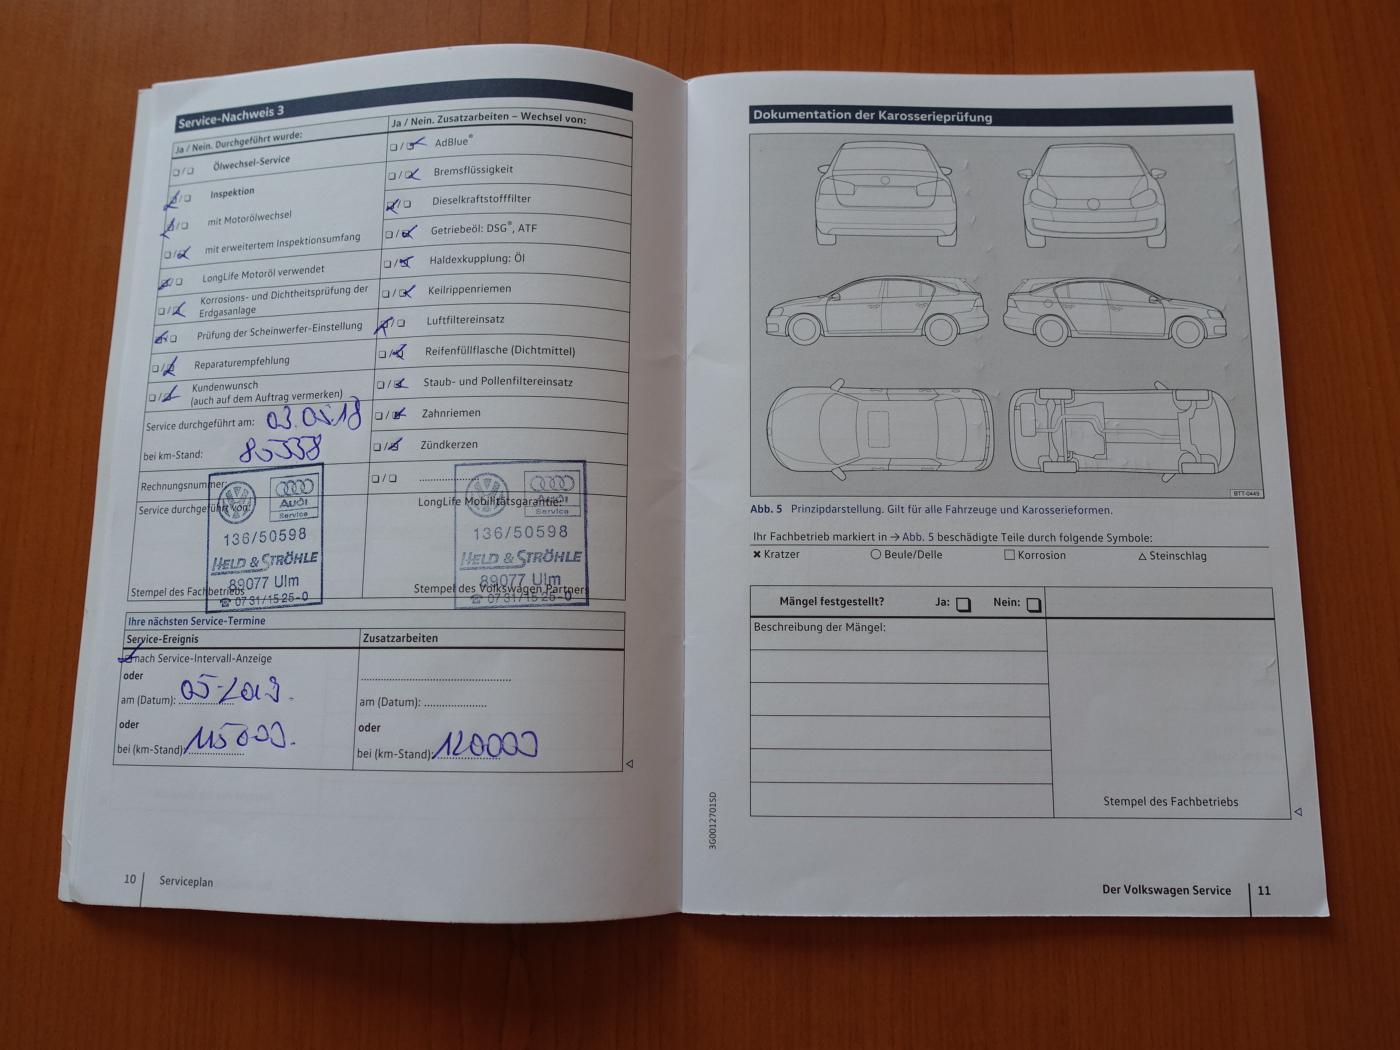 Service-Nachweis 3
Ja / Nein. Durchgeführt wurde:
Ölwechsel-Service
Inspektion
mit Motorölwechsel
mit erweitertem Inspektionsumfang
LongLife Motoröl verwendet
Korrosions- und Dichtheitsprüfung der
Erdgasanlage
Prüfung der Scheinwerfer-Einstellung
Reparaturempfehlung
Kundenwunsch
(auch auf dem Auftrag vermerken)
Service durchgeführt am: 03.05.18
bei km-Stand: 85338
Rechnungsnummer:
Service durchgeführt von:
Audi
Service
136/50598
HELD & STRÖHLE
89077 Ulm
☎ 0731/1525-0
Stempel des Fachbetriebs
Ja / Nein. Zusatzarbeiten – Wechsel von:
AdBlue®
Bremsflüssigkeit
Dieselkraftstofffilter
Getriebeöl: DSG®, ATF
Haldexkupplung: Öl
Keilrippenriemen
Luftfiltereinsatz
Reifenfüllflasche (Dichtmittel)
Staub- und Pollenfiltereinsatz
Zahnriemen
Zündkerzen
LongLife Mobilitätsgarantie:
Audi
Service
136/50598
HELD & STRÖHLE
89077 Ulm
☎ 0731/1525-0
Stempel des Volkswagen Partners
Ihre nächsten Service-Termine
Service-Ereignis
nach Service-Intervall-Anzeige
oder
am (Datum): 05-2019.
oder
bei (km-Stand): 115000.
Zusatzarbeiten
am (Datum):
oder
bei (km-Stand): 120000
10 Serviceplan
Dokumentation der Karosserieprüfung
BTT-0449
Abb. 5 Prinzipdarstellung. Gilt für alle Fahrzeuge und Karosserieformen.
Ihr Fachbetrieb markiert in → Abb. 5 beschädigte Teile durch folgende Symbole:
✖ Kratzer ○ Beule/Delle □ Korrosion △ Steinschlag
Mängel festgestellt? Ja: Nein:
Beschreibung der Mängel:
Stempel des Fachbetriebs
3G0012701SD
Der Volkswagen Service 11